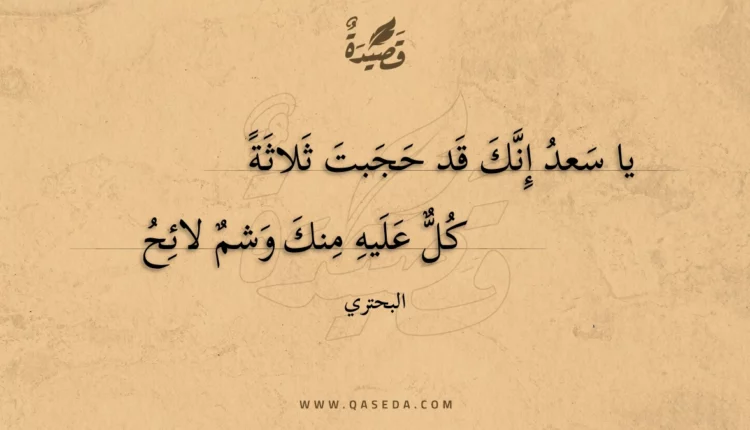 قَصِيدَةٌ
يا سَعدُ إِنَّكَ قَد حَجَبتَ ثَلاثَةً
كُلٌّ عَلَيهِ مِنكَ وَشمٌ لائِحُ
البحتري
WWW.QASEDA.COM